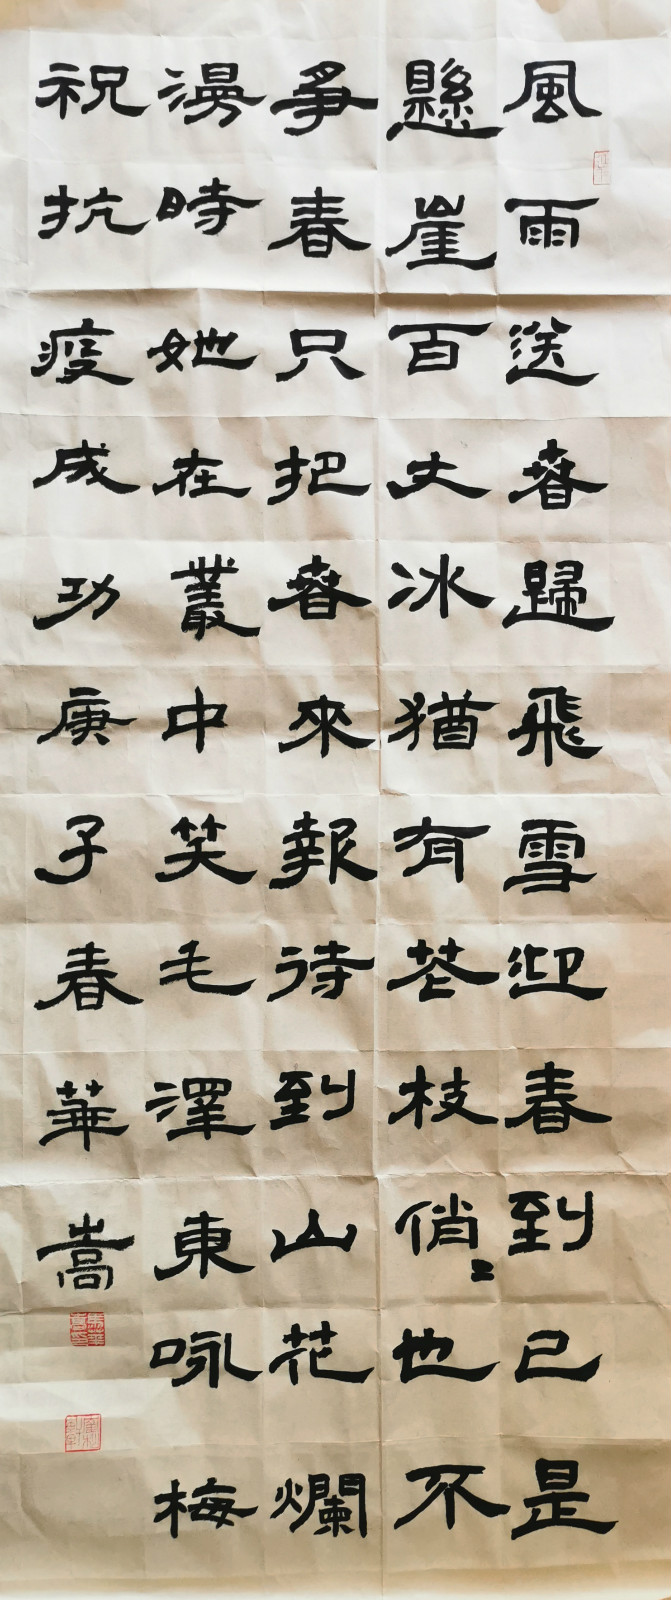 風雨送春歸飛雪迎春到已是
懸崖百丈冰猶有花枝俏〻也不
爭春只把春來報待到山花爛
漫時她在叢中笑毛澤東咏梅
祝抗疫成功庚子春華嵩